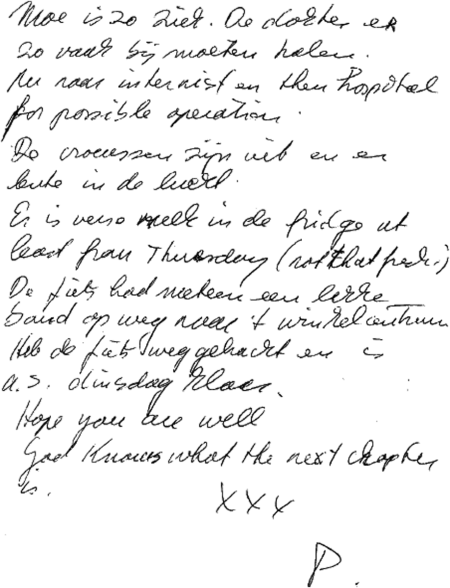 Moe is zo ziek. De dokter er
zo vaak bij moeten halen.
Nu naar internist en then hospital
for possible operation.
De crocussen zijn uit en er
lente in de lucht.
Er is verse melk in de fridge at
least from Thursday (not that fresh!)
De fiets had meteen een lekke
band op weg naar 't winkelcentrum
Heb de fiets weggebracht en is
a.s. dinsdag klaar.
Hope you are well
God knows what the next chapter
is.
XXX
P.